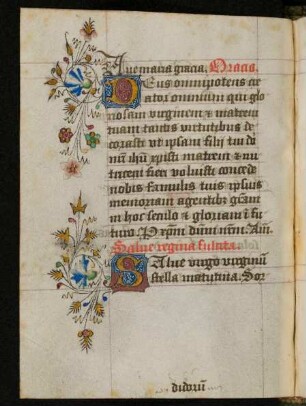 Aue maria gracia. Oracio.
Deus omnipotens cre
ator omnium qui glo
riosam virginem & matrem
tuam tantis virtutibus de
corasti vt ipsam filij tui do
mi ihu xpisti matrem & nu
tricem fieri voluisti concede
nobis famulis tuis ipsius
memoriam agentibus gram
in hoc seculo & gloriam i fu
turo. P dnm nrm. Am
Salue regina
Salue virgo virginum
stella matutina. Sor
didorum